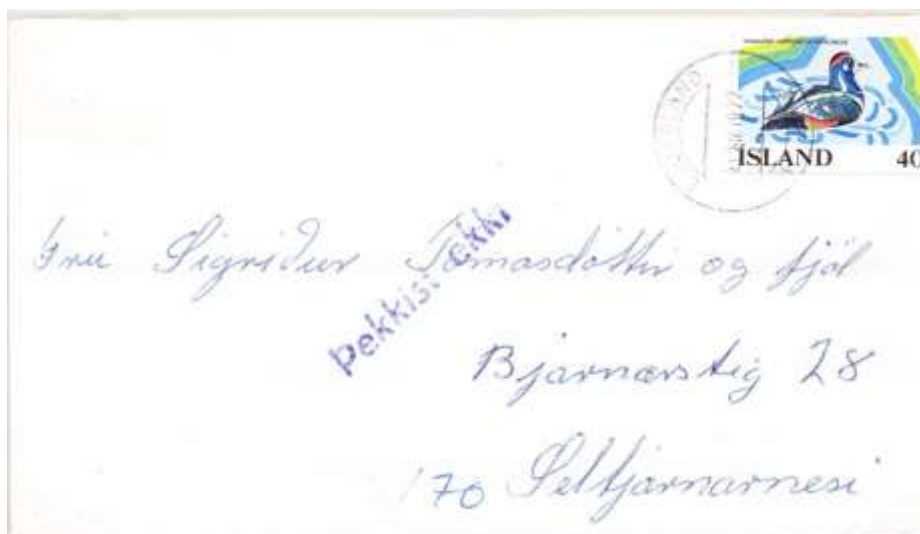 ÍSLAND 40
Frú Sigríður Tómasdóttir og fjöl
Þekkist ekki
Bjarnarstig 28
170 Seltjarnarnesi